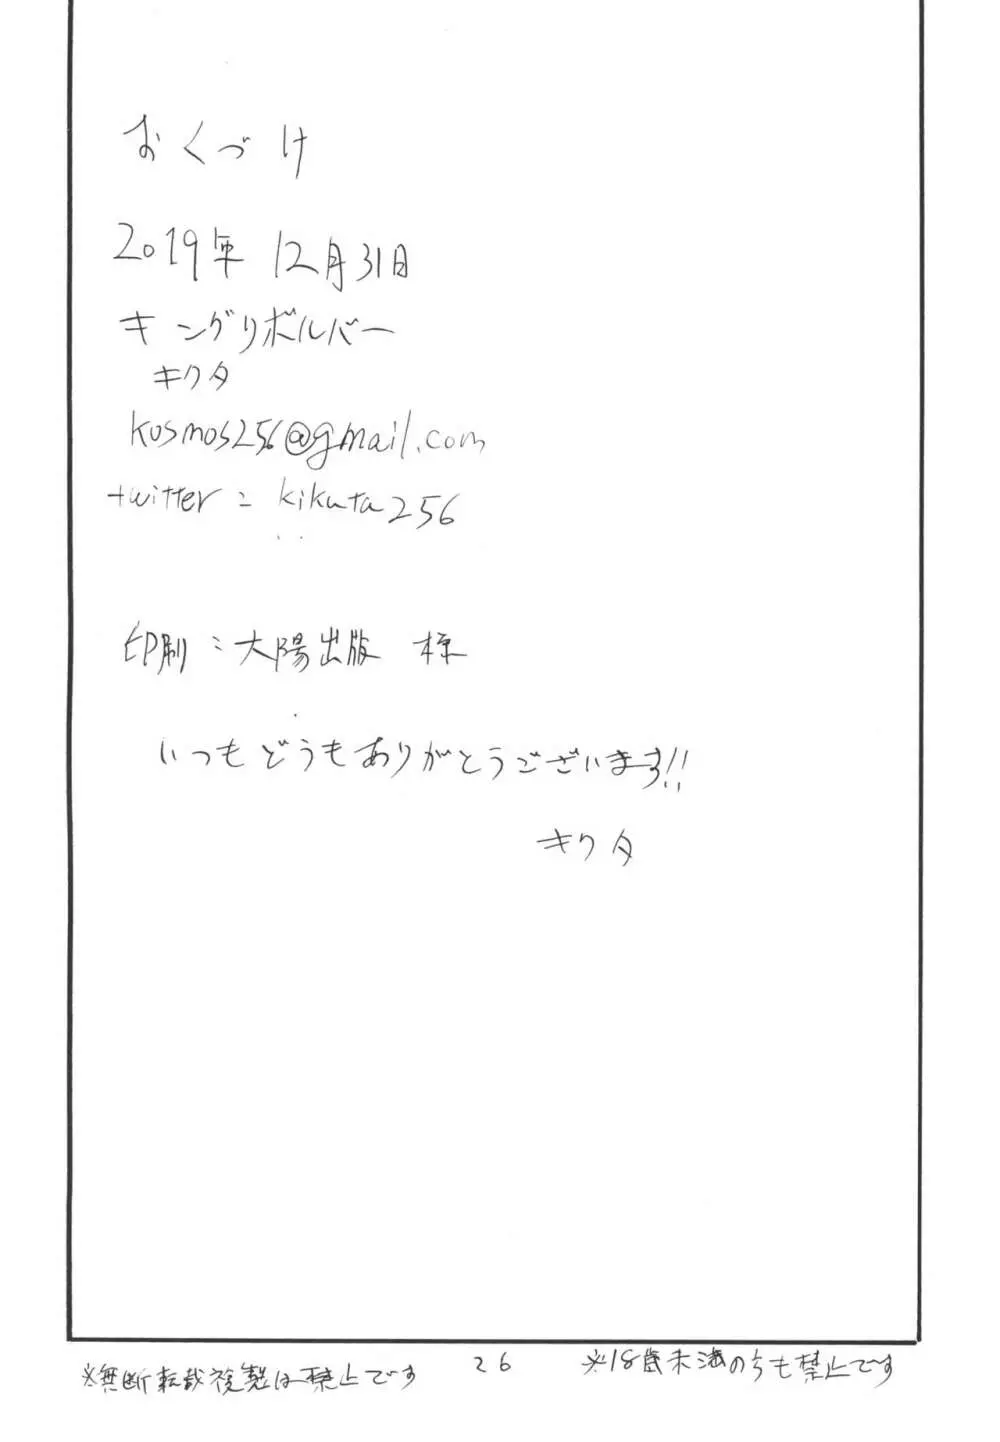 おくづけ
2019年 12月31日
キングリボルバー
キクタ
kosmos256@gmail.com
twitter: kikuta256
印刷:大陽出版 様
いつもどうもありがとうございます!!
キクタ
※無断転載複製は禁止です
26
※18歳未満のうも禁止です